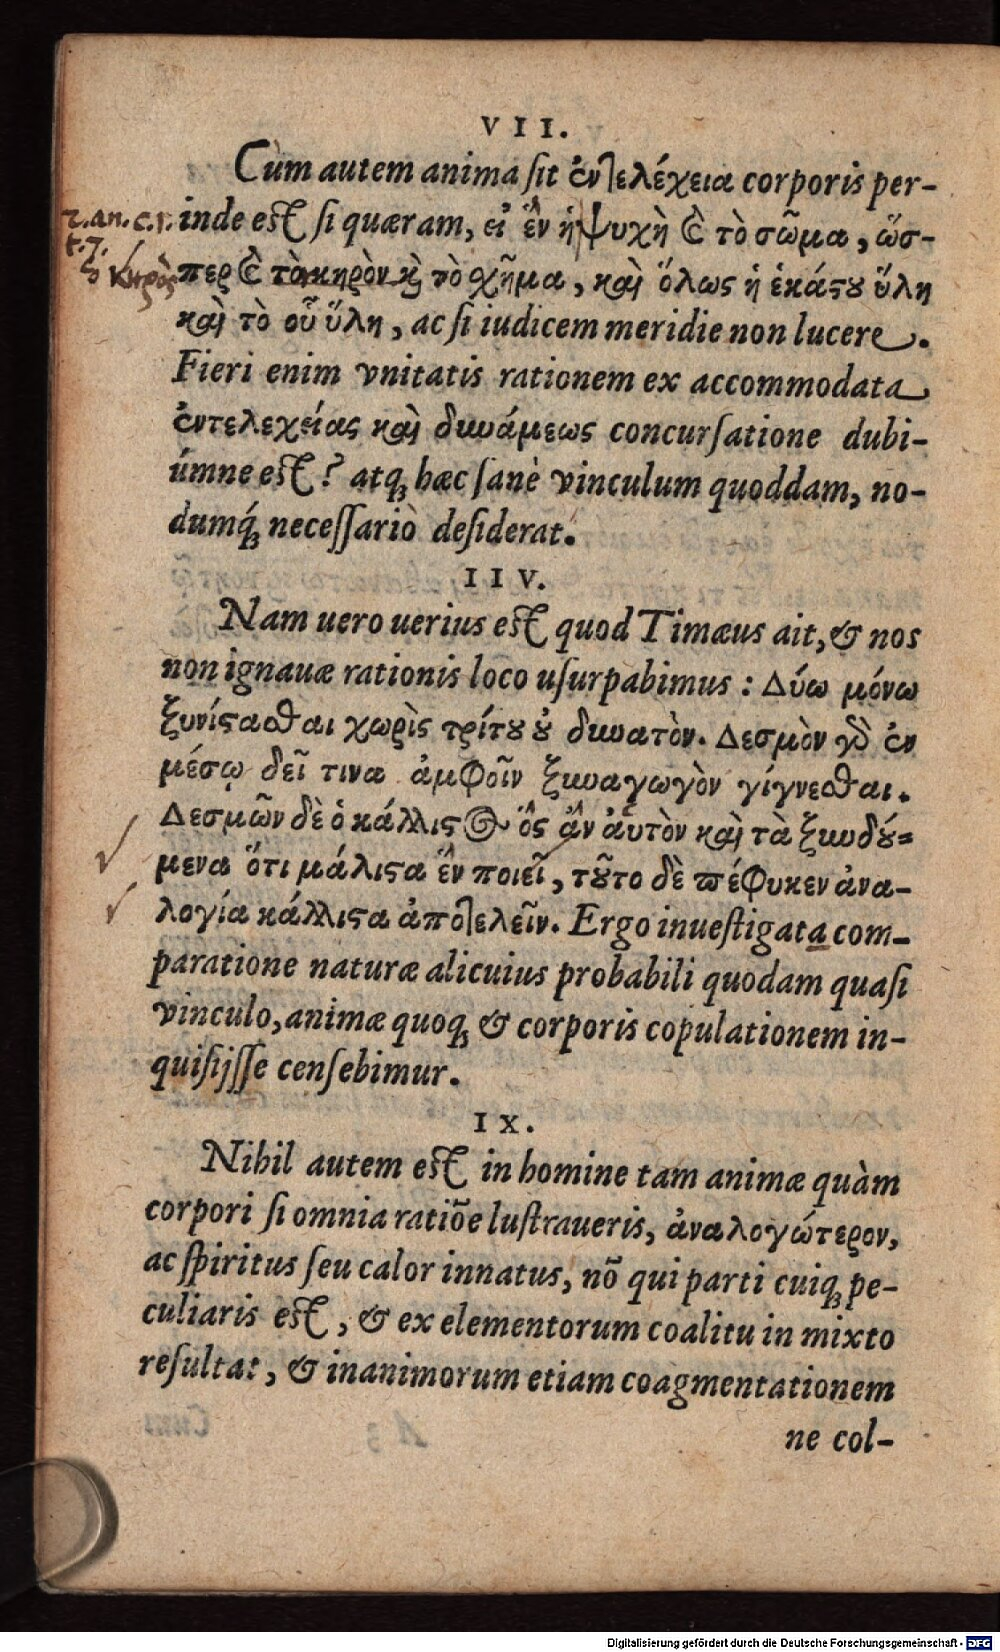 VII.
Cùm autem anima sit ἐντελέχεια corporis per-
inde est si quæram, εἰ ἓν ἡ ψυχὴ ϗ τὸ σῶμα, ὥσ-
περ ϗ τὸ κηρὸν ϗ τὸ χῆμα, καὶ ὅλως ἡ ἑκάϛου ὕλη
καὶ τὸ οὗ ὕλη, ac si iudicem meridie non lucere.
Fieri enim vnitatis rationem ex accommodata
ἐντελεχείας καὶ δυνάμεως concursatione dubi-
úmne est? atq; hæc sanè vinculum quoddam, no-
dumq́; necessariò desiderat.
IIV.
Nam uero uerius est quod Timæus ait, & nos
non ignauæ rationis loco usurpabimus: Δύω μόνω
ξυνίϛασθαι χωρὶς τρίτου οὐ δυνατὸν. Δεσμὸν γὸ ἐν
μέσῳ δεῖ τινα ἀμφοῖν ξυναγωγὸν γίγνεσθαι.
Δεσμῶν δὲ ὁ κάλλιϛος ὃς ἂν αὑτὸν καὶ τὰ ξυνδού=
μενα ὅτι μάλιϛα ἓν ποιεῖ, τοῦτο δὲ πέφυκεν ἀνα-
λογία κάλλιϛα ἀποτελεῖν. Ergo inuestigata com-
paratione naturæ alicuius probabili quodam quasi
vinculo, animæ quoq; & corporis copulationem in-
quisijsse censebimur.
IX.
Nihil autem est in homine tam animæ quàm
corpori si omnia ratiõe lustraueris, ἀναλογώτερον,
ac spiritus seu calor innatus, nõ qui parti cuiq; pe-
culiaris est, & ex elementorum coalitu in mixto
resultat, & inanimorum etiam coagmentationem
ne col-
2. an. c. 1.
t. 7.
κηρὸς
Digitalisierung gefördert durch die Deutsche Forschungsgemeinschaft - DFG